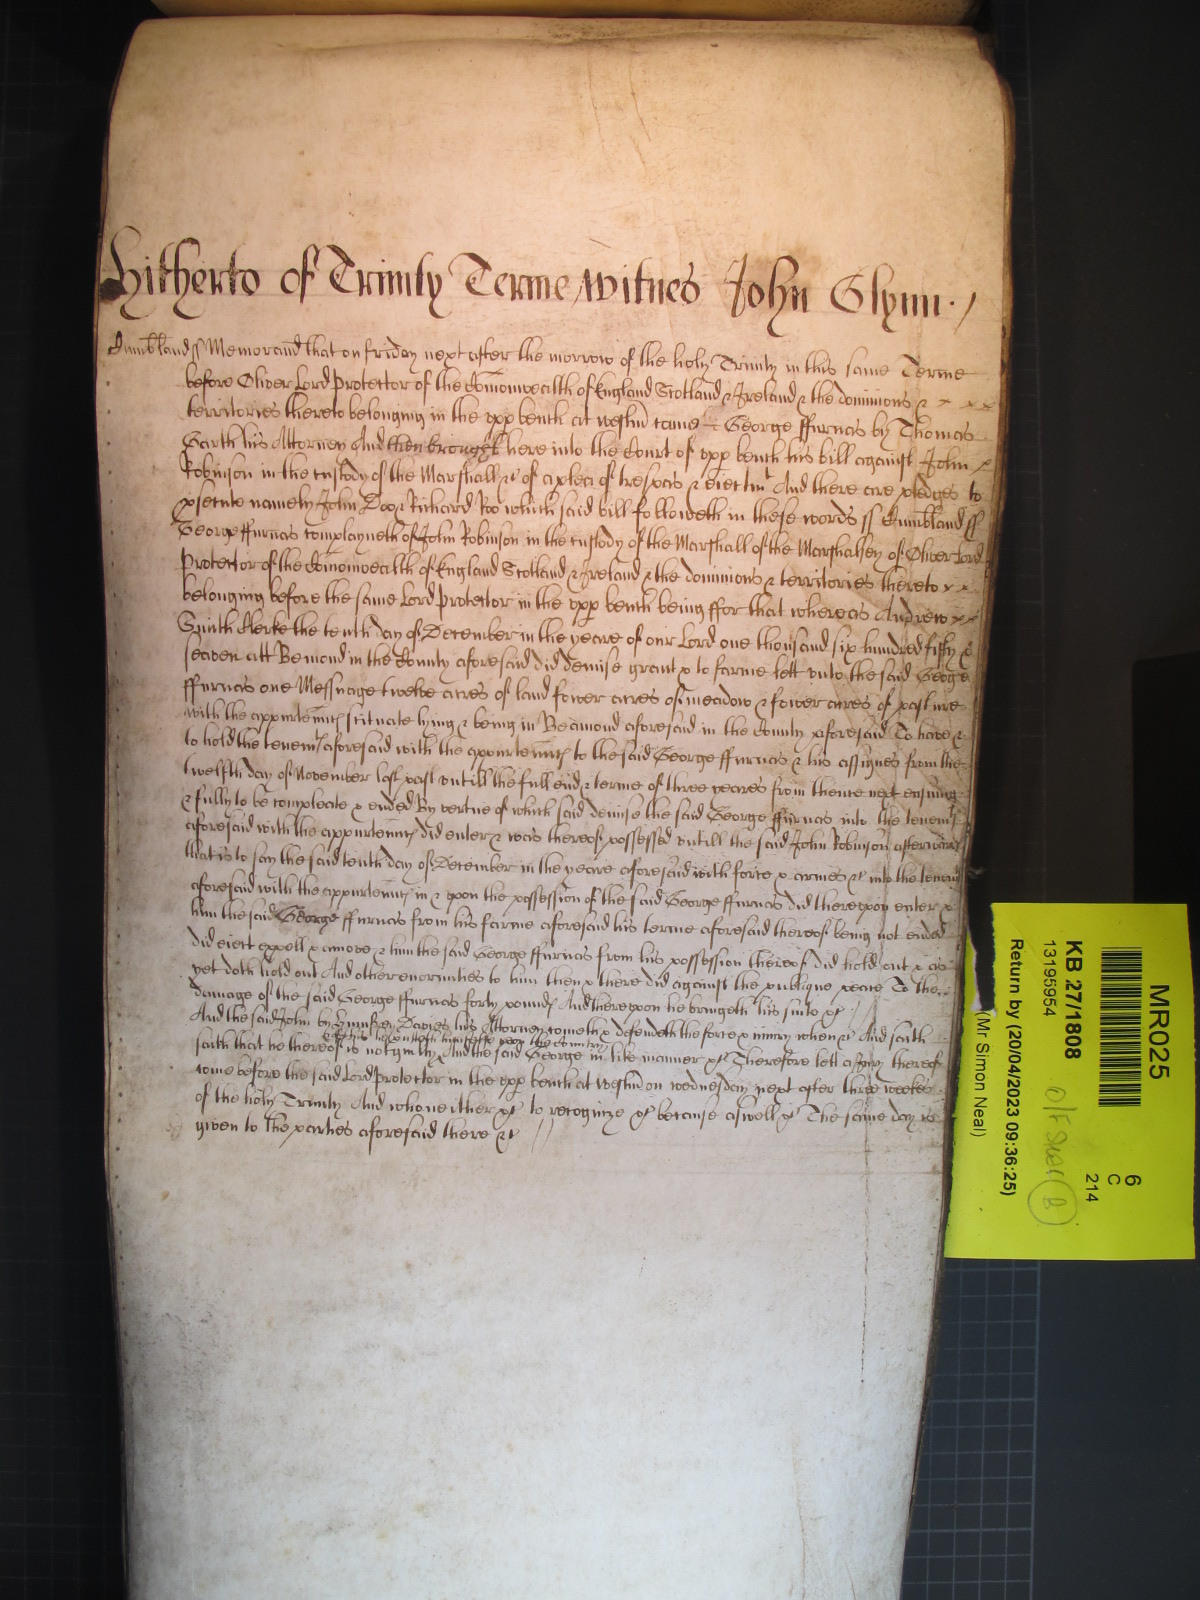 Hitherto of Trinity Terme witnes John Glynn
Cumbland ss Memorand that on friday next after the morrow of the holy Trinity in this same Terme
before Oliver Lord Protector of the Comonwealth of England Scotland & Ireland & the dominions & x x x
territories thereto belonging in the upp bench at westm came George ffurnas by Thomas
Garth his Attorney And then brought here into the Court of upp bench his bill against John x
Robinson in the custody of the Marshall &c of a plea of trespas & eiectmt And there are pledges to
psecute namely John Doo & Richard Roo which said bill followeth in these words ss Cumbland ss
George ffurnas complayneth of John Robinson in the custody of the Marshall of the Marshalsey of Oliver Lord
Protector of the Comonwealth of England Scotland & Ireland & the dominions & territories thereto x x
belonging before the same Lord Protector in the upp bench being ffor that whereas Andrew x x
Smith Clerke the tenth day of December in the yeare of our Lord one thousand six hundred fifty &
seaven att Bemond in the County aforesaid did demise grant & to farme lett unto the said George
ffurnas one Messuage twelve acres of land fower acres of meadow & fower acres of pasture
with the appurtenntes scituate lying & being in Beamond aforesaid in the County aforesaid To have &
to hold the tenemts aforesaid with the appurtenntes to the said George ffurnas & his assignes from the
twelfth day of November last past untill the full end & terme of three yeares from thence next ensuing
& fully to be compleate & ended By vertue of which said demise the said George ffurnas into the tenemts
aforesaid with the appurtenntes did enter & was thereof possessed untill the said John Robinson afterwards
that is to say the said tenth day of December in the yeare aforesaid with force & armes &c into the tenemts
aforesaid with the appurtenntes in & upon the possession of the said George ffurnas did thereupon enter &
him the said George ffurnas from his farme aforesaid his terme aforesaid thereof being not ended
did eiect expell & amove & him the said George ffurnas from his possession thereof did hold out & as
yet doth hold out And other enormities to him then & there did against the publique peace To the
damage of the said George ffurnas forty pounds And thereupon he bringeth his suite &c
And the said John by Humfrey Davies his Attorney cometh & defendeth the force & iniury when &c And saith
And of this he putteth himselfe upon the Country
saith that he thereof is not guilty And the said George in like manner &c Therefore lett a Jury thereof
come before the said Lord Protector in the upp bench at Westm on wednesday next after three weekes
of the holy Trinity And who neither &c to recognize &c because aswell &c The same day is
given to the parties aforesaid there &c
MR025
6
C
214
KB 27/1808
13195954
Return by (20/04/2023 09:36:25)
(Mr Simon Neal)